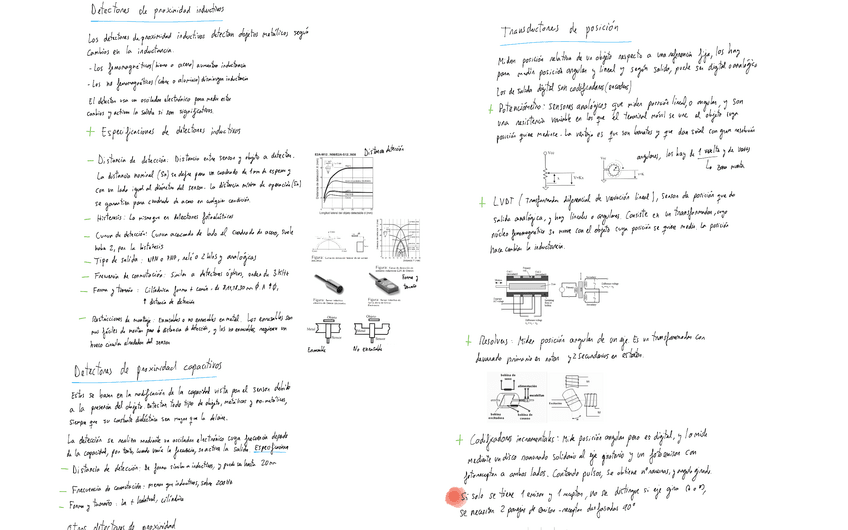 Detectores de proximidad inductivos
Los detectores de proximidad inductivos detectan objetos metálicos según
cambios en la inductancia
- Los ferromagnéticos (hierro o acero) aumentan inductancia
- Los no ferromagnéticos (cobre o aluminio) disminuyen inductancia
El detector usa un oscilador electrónico para medir estos
cambios y activa la salida si son significativos
+ Especificaciones de detectores inductivos
- Distancia de detección: Distancia entre sensor y objeto a detectar.
La distancia nominal (Sn) se define para un cuadrado de 1 mm de espesor y
con un lado igual al diámetro del sensor. La distancia
se garantiza para cuadrado de acero en cualquier condición.
- Histéresis: Lo mismo que en detectores fotoeléctricos
- Curva de detección: Curva acercando de lado el cuadrado de acero, suele
haber 2, por la histéresis
- Tipo de salida: NPN o PNP, relé o 2 hilos y analógicos
- Frecuencia de conmutación: Similar a detectores ópticos, orden de 3 KHz
- Forma y tamaño: Cilíndrica
↑ distancia de detección
- Restricciones de montaje: Enrasables o no enrasables en metal. Los enrasables son
más fáciles de montar pero ↓ distancia de detección, y los no enrasables requieren un
hueco circular alrededor del sensor
Distancia detección
Forma y
tamaño
Enrasable No enrasable
Detectores de proximidad capacitivos
Estos se basan en la modificación de la capacidad vista por el sensor debido
a la presencia del objeto. Detectan todo tipo de objeto, metálicos y no metálicos,
siempre que su constante dieléctrica sea mayor que la del aire.
La detección se realiza mediante un oscilador electrónico cuya frecuencia depende
de la capacidad, por tanto, cuando varía la frecuencia, se activa la salida Especificaciones
- Distancia de detección: De forma similar a inductivos, y puede ser hasta 20 mm
- Frecuencia de conmutación: menor que inductivos, sobre 200 Hz
- Forma y tamaño: cilíndrica
Otros detectores de proximidad
Transductores de posición
Miden posición relativa de un objeto respecto a una referencia fija, los hay
para medir posición angular y lineal y según salida, puede ser digital o analógico
Los de salida digital son codificadores (encoders)
+ Potenciómetro: sensores analógicos que miden posición lineal o angular, y son
una resistencia variable en los que el terminal móvil se une al objeto cuya
posición quiere medirse. La ventaja es que son baratos y que dan señal con gran resolución
angulares, los hay de 1 vuelta y de varias
+ LVDT (Transformador diferencial de variación lineal), sensor de posición que da
salida analógica, y hay lineales o angulares. Consiste en un transformador, cuyo
núcleo ferromagnético se mueve con el objeto cuya posición se quiere medir. La posición
hace cambiar la inductancia.
+ Resolvers: Miden posición angular de un eje. Es un transformador con
devanado primario en rotor y 2 secundarios en estator.
+ Codificadores incrementales: Mide posición angular pero es digital, y lo mide
mediante un disco ranurado solidario al eje giratorio y un fotoemisor con
fotorreceptor a ambos lados. Contando pulsos, se obtiene nº ranuras, y ángulo girado.
Si solo se tiene 1 emisor y 1 receptor, no se distingue si eje gira
se necesitan 2 parejas de emisor-receptor desfasadas 90°